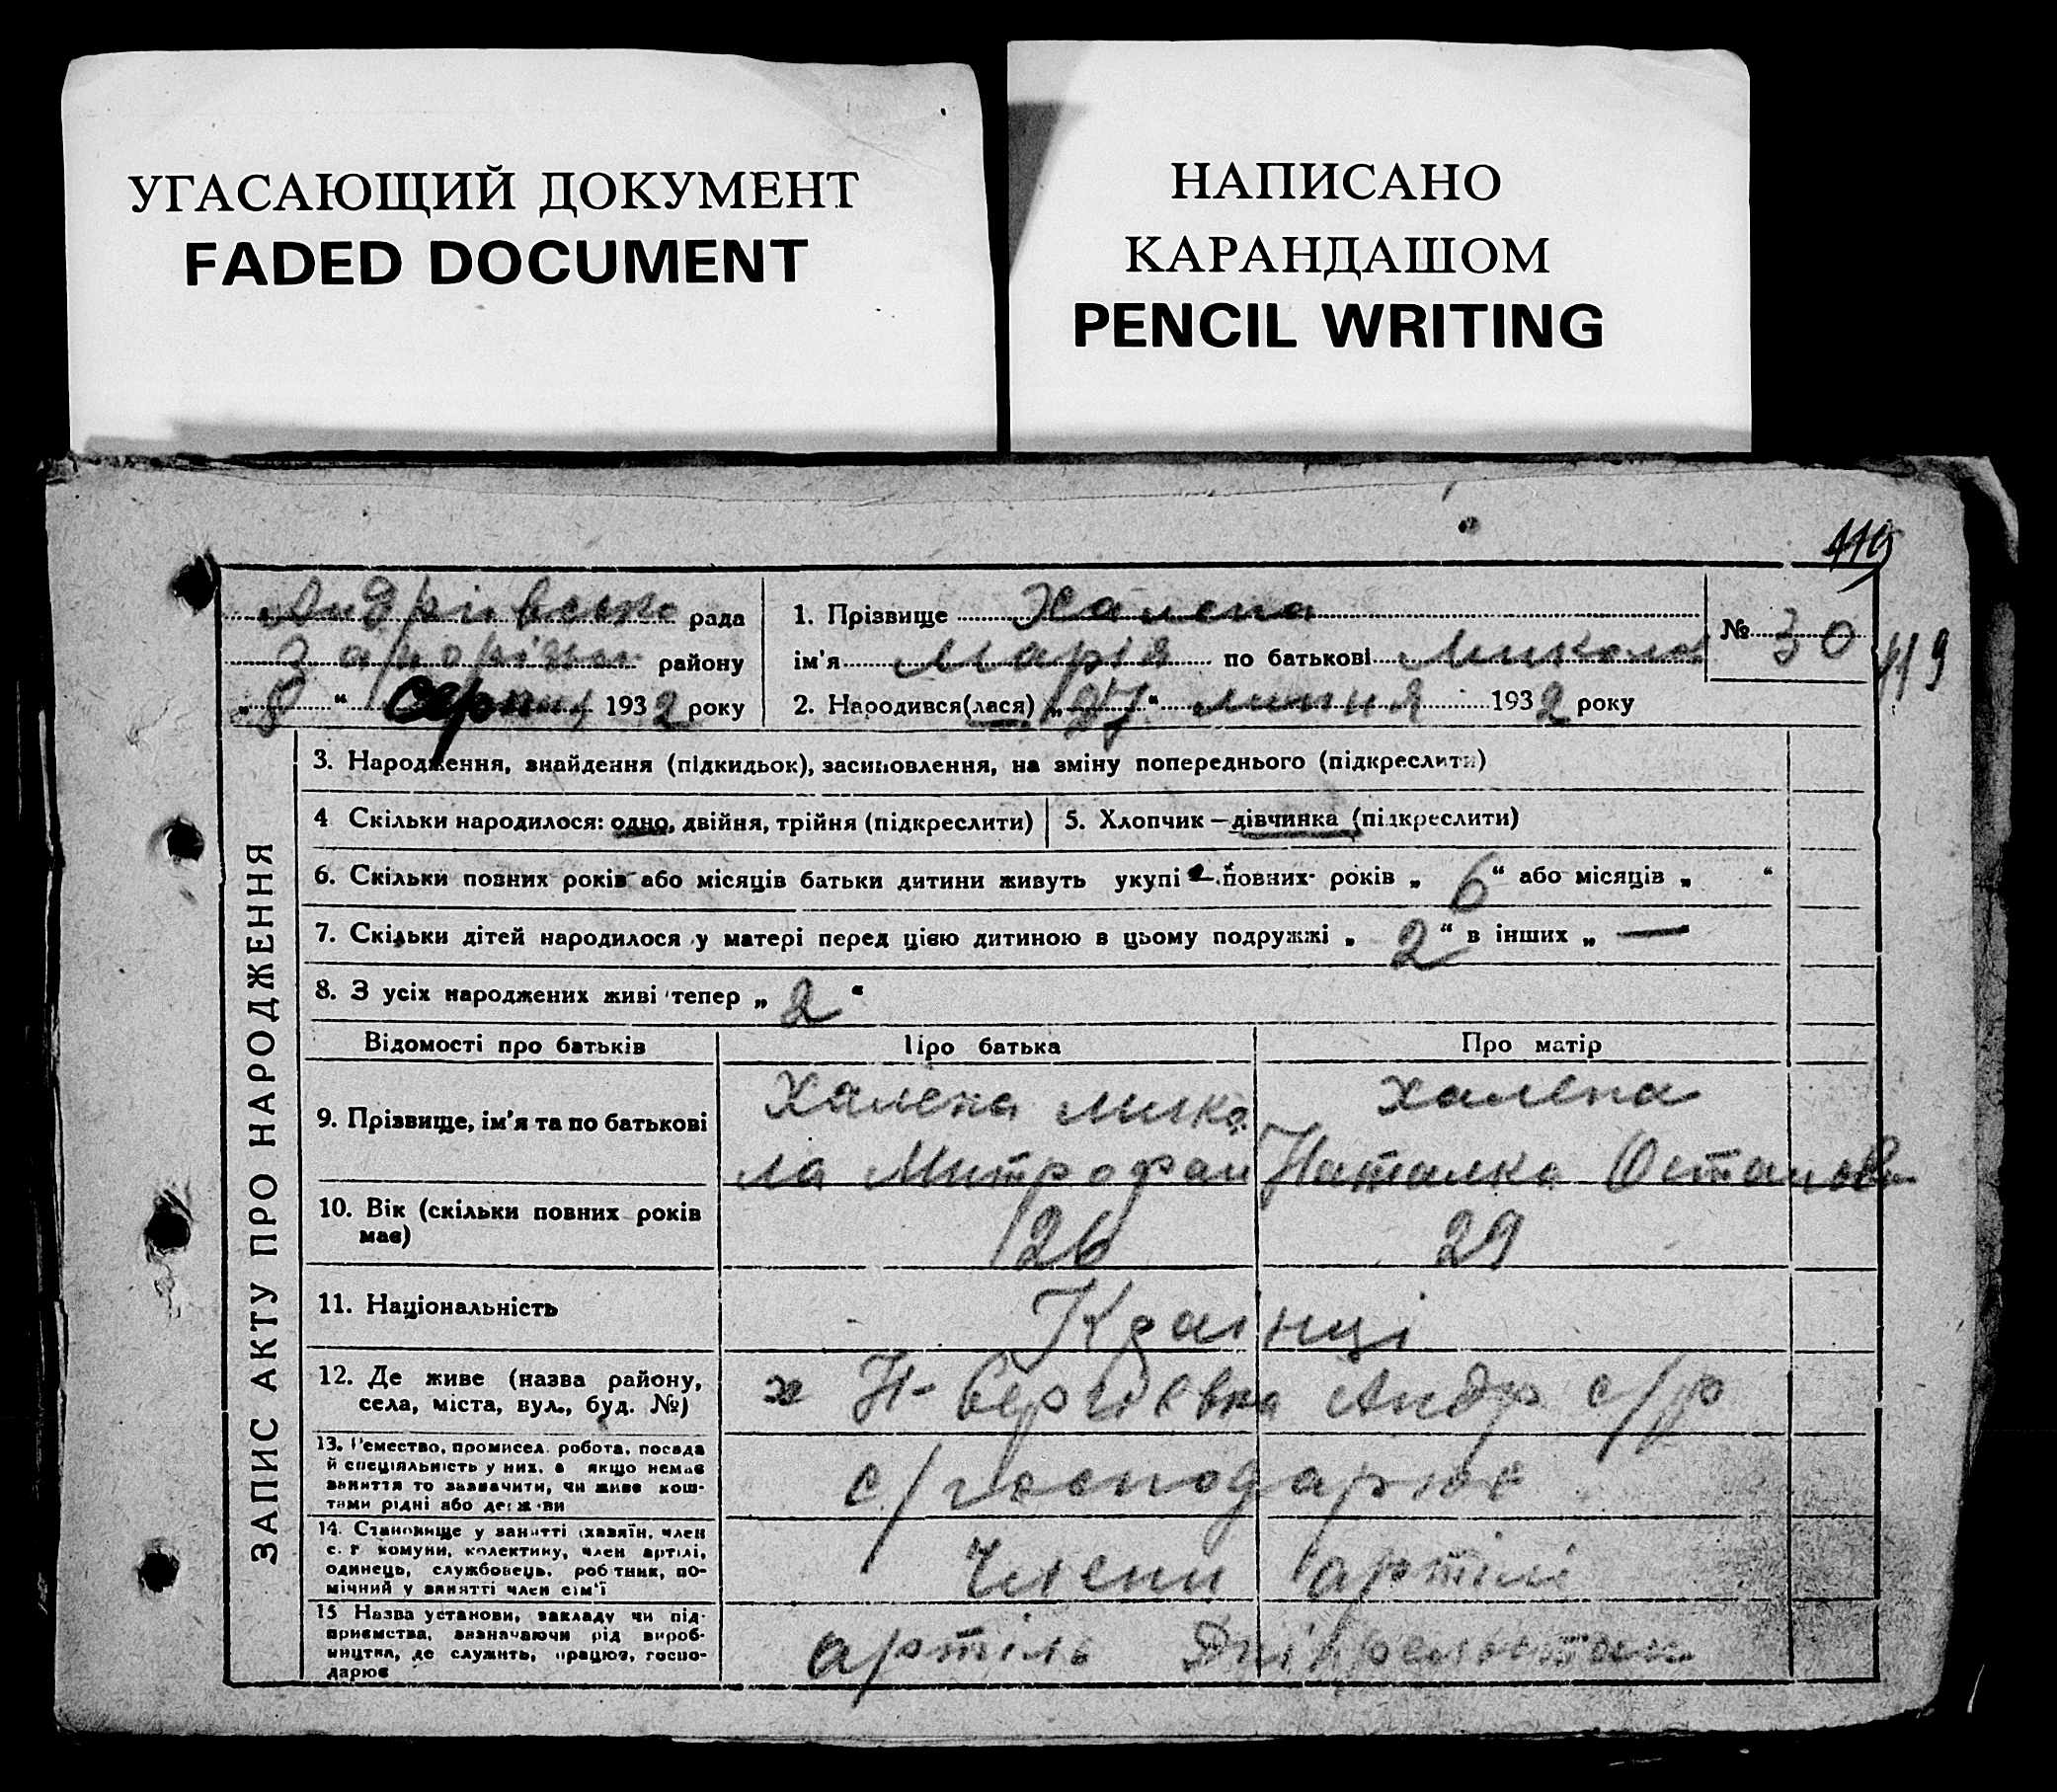 УГАСАЮЩИЙ ДОКУМЕНТ
FADED DOCUMENT
НАПИСАНО
КАРАНДАШОМ
PENCIL WRITING
119
Андрівська рада
Запорізьк району
„ 8 “ серпня 1932 року
1. Прізвище Халепа
ім'я Марія по батькові Микола
2. Народився(лася) „ 27 “ липня 1932 року
№ 30
119
ЗАПИС АКТУ ПРО НАРОДЖЕННЯ
3. Народження, знайдення (підкидьок), засиновлення, на зміну попереднього (підкреслити)
4 Скільки народилося: одно, двійня, трійня (підкреслити)
5. Хлопчик — дівчинка (підкреслити)
6. Скільки повних років або місяців батьки дитини живуть укупі — повних років „ 6 “ або місяців „ “
7. Скільки дітей народилося у матері перед цією дитиною в цьому подружжі „ 2 “ в інших „ — “
8. З усіх народжених живі тепер „ 2 “
Відомості про батьків Про батька Про матір
9. Прізвище, ім'я та по батькові
Халепа Мико
ла Митрофан
Халепа
Наталка Остаповн
10. Вік (скільки повних років
має)
26 29
11. Національність Країнці
12. Де живе (назва району,
села, міста, вул., буд. №)
х Н-Сергієвка Андр с/р
13. Ремество, промисел, робота, посада
й спеціяльність у них, а якщо немає
заняття то зазначити, чи живе кош-
тами рідні або держави
с/господарює
14. Становище у занятті (хазяїн, член
с. г. комуни, колективу, член артілі,
одинець, службовець, робітник, по-
мічний у занятті член сім'ї
Члени артілі
15 Назва установи, закладу чи під-
приємства, зазначаючи рід вироб-
ництва, де служить, працює, госпо-
дарює
артіль